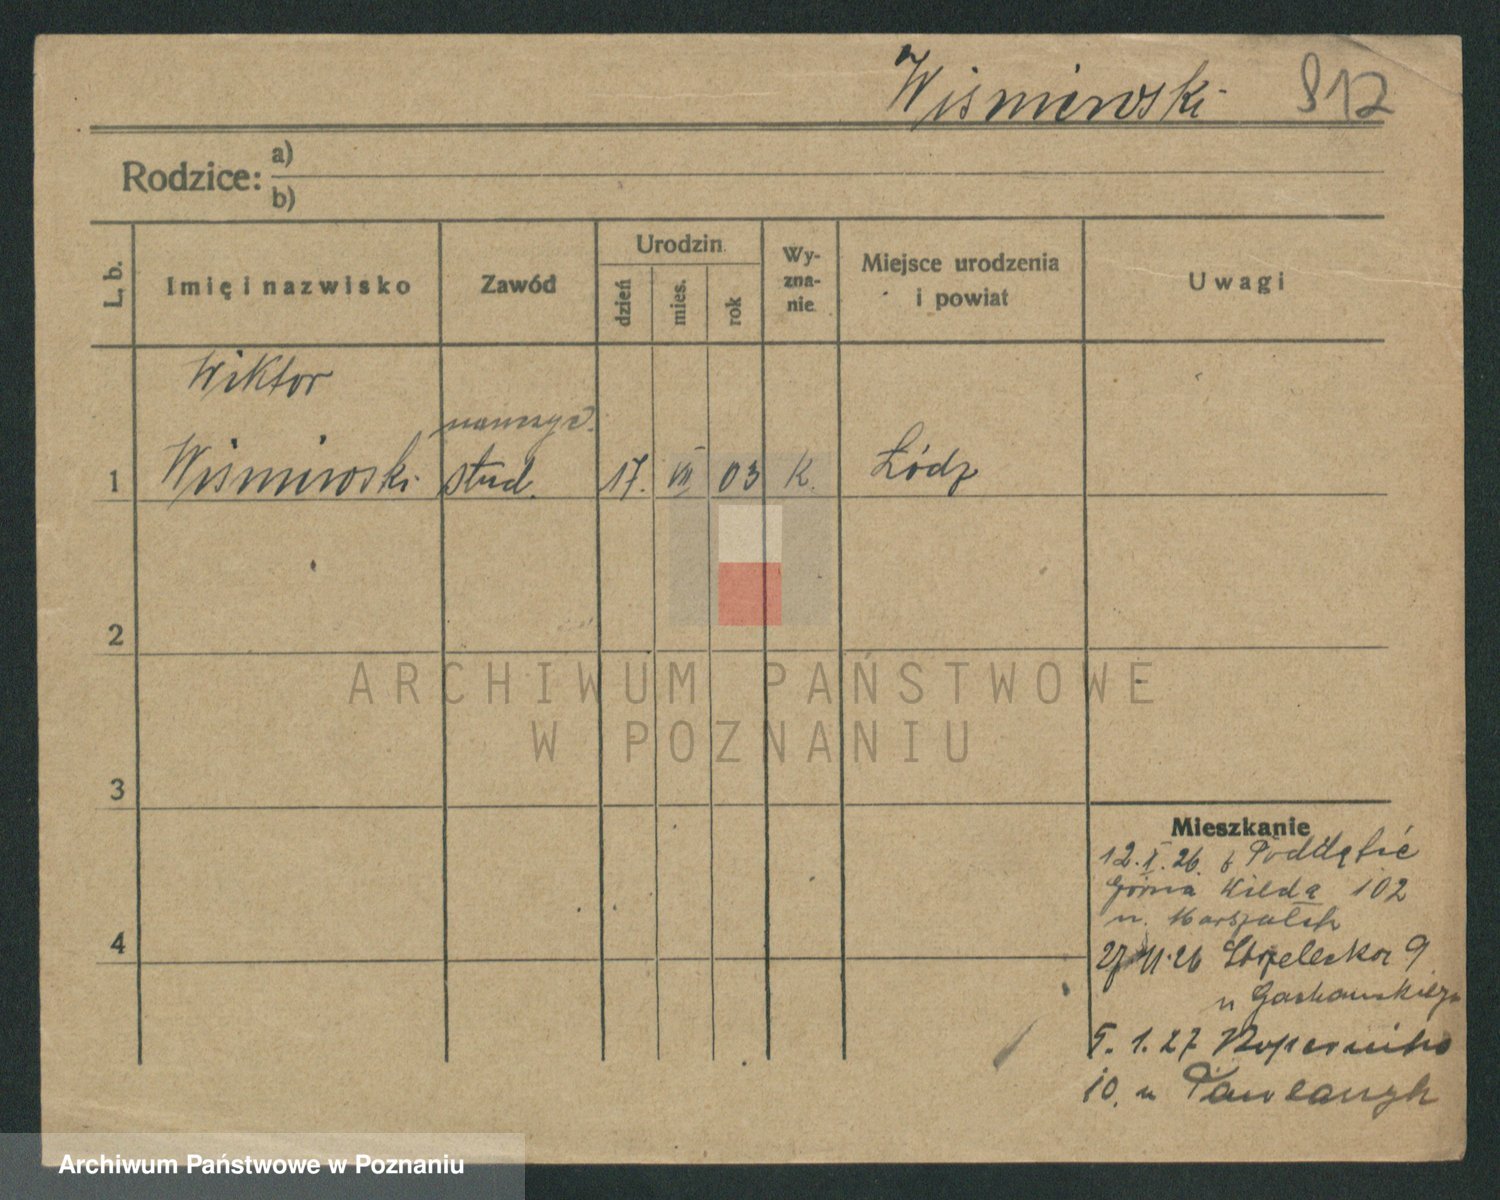 Wiśmirski 912
Rodzice: a)
b)
L. b. Imię i nazwisko Zawód Urodzin. dzień mies. rok Wy-zna-nie Miejsce urodzenia i powiat Uwagi
Wiktor
nauczyc.
1 Wiśmirski stud. 17. VII 03 K. Łódź
2
3
4
Mieszkanie
12. X. 26. z Poddębic
Górna Wilda 102
u. Marszałek
27 XI 26 Strzelecka 9
u
5. 1. 27 Kopernika
10. u Pawlaczyk
ARCHIWUM PAŃSTWOWE
W POZNANIU
Archiwum Państwowe w Poznaniu